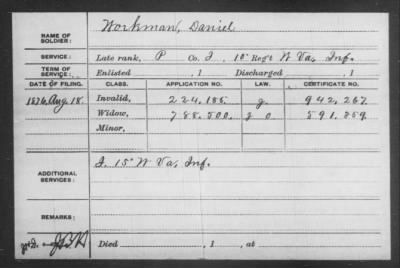 NAME OF SOLDIER: Workman, Daniel
SERVICE: Late rank, P Co. I, 15" Reg't W Va, Inf.
TERM OF SERVICE: Enlisted , 1 Discharged , 1
DATE OF FILING. CLASS. APPLICATION NO. LAW. CERTIFICATE NO.
1876, Aug. 18. Invalid, 224.185. g. 942.267.
Widow, 788.500. g o 591.859
Minor,
ADDITIONAL SERVICES: I. 15" W Va, Inf.
REMARKS:
Died , 1 , at